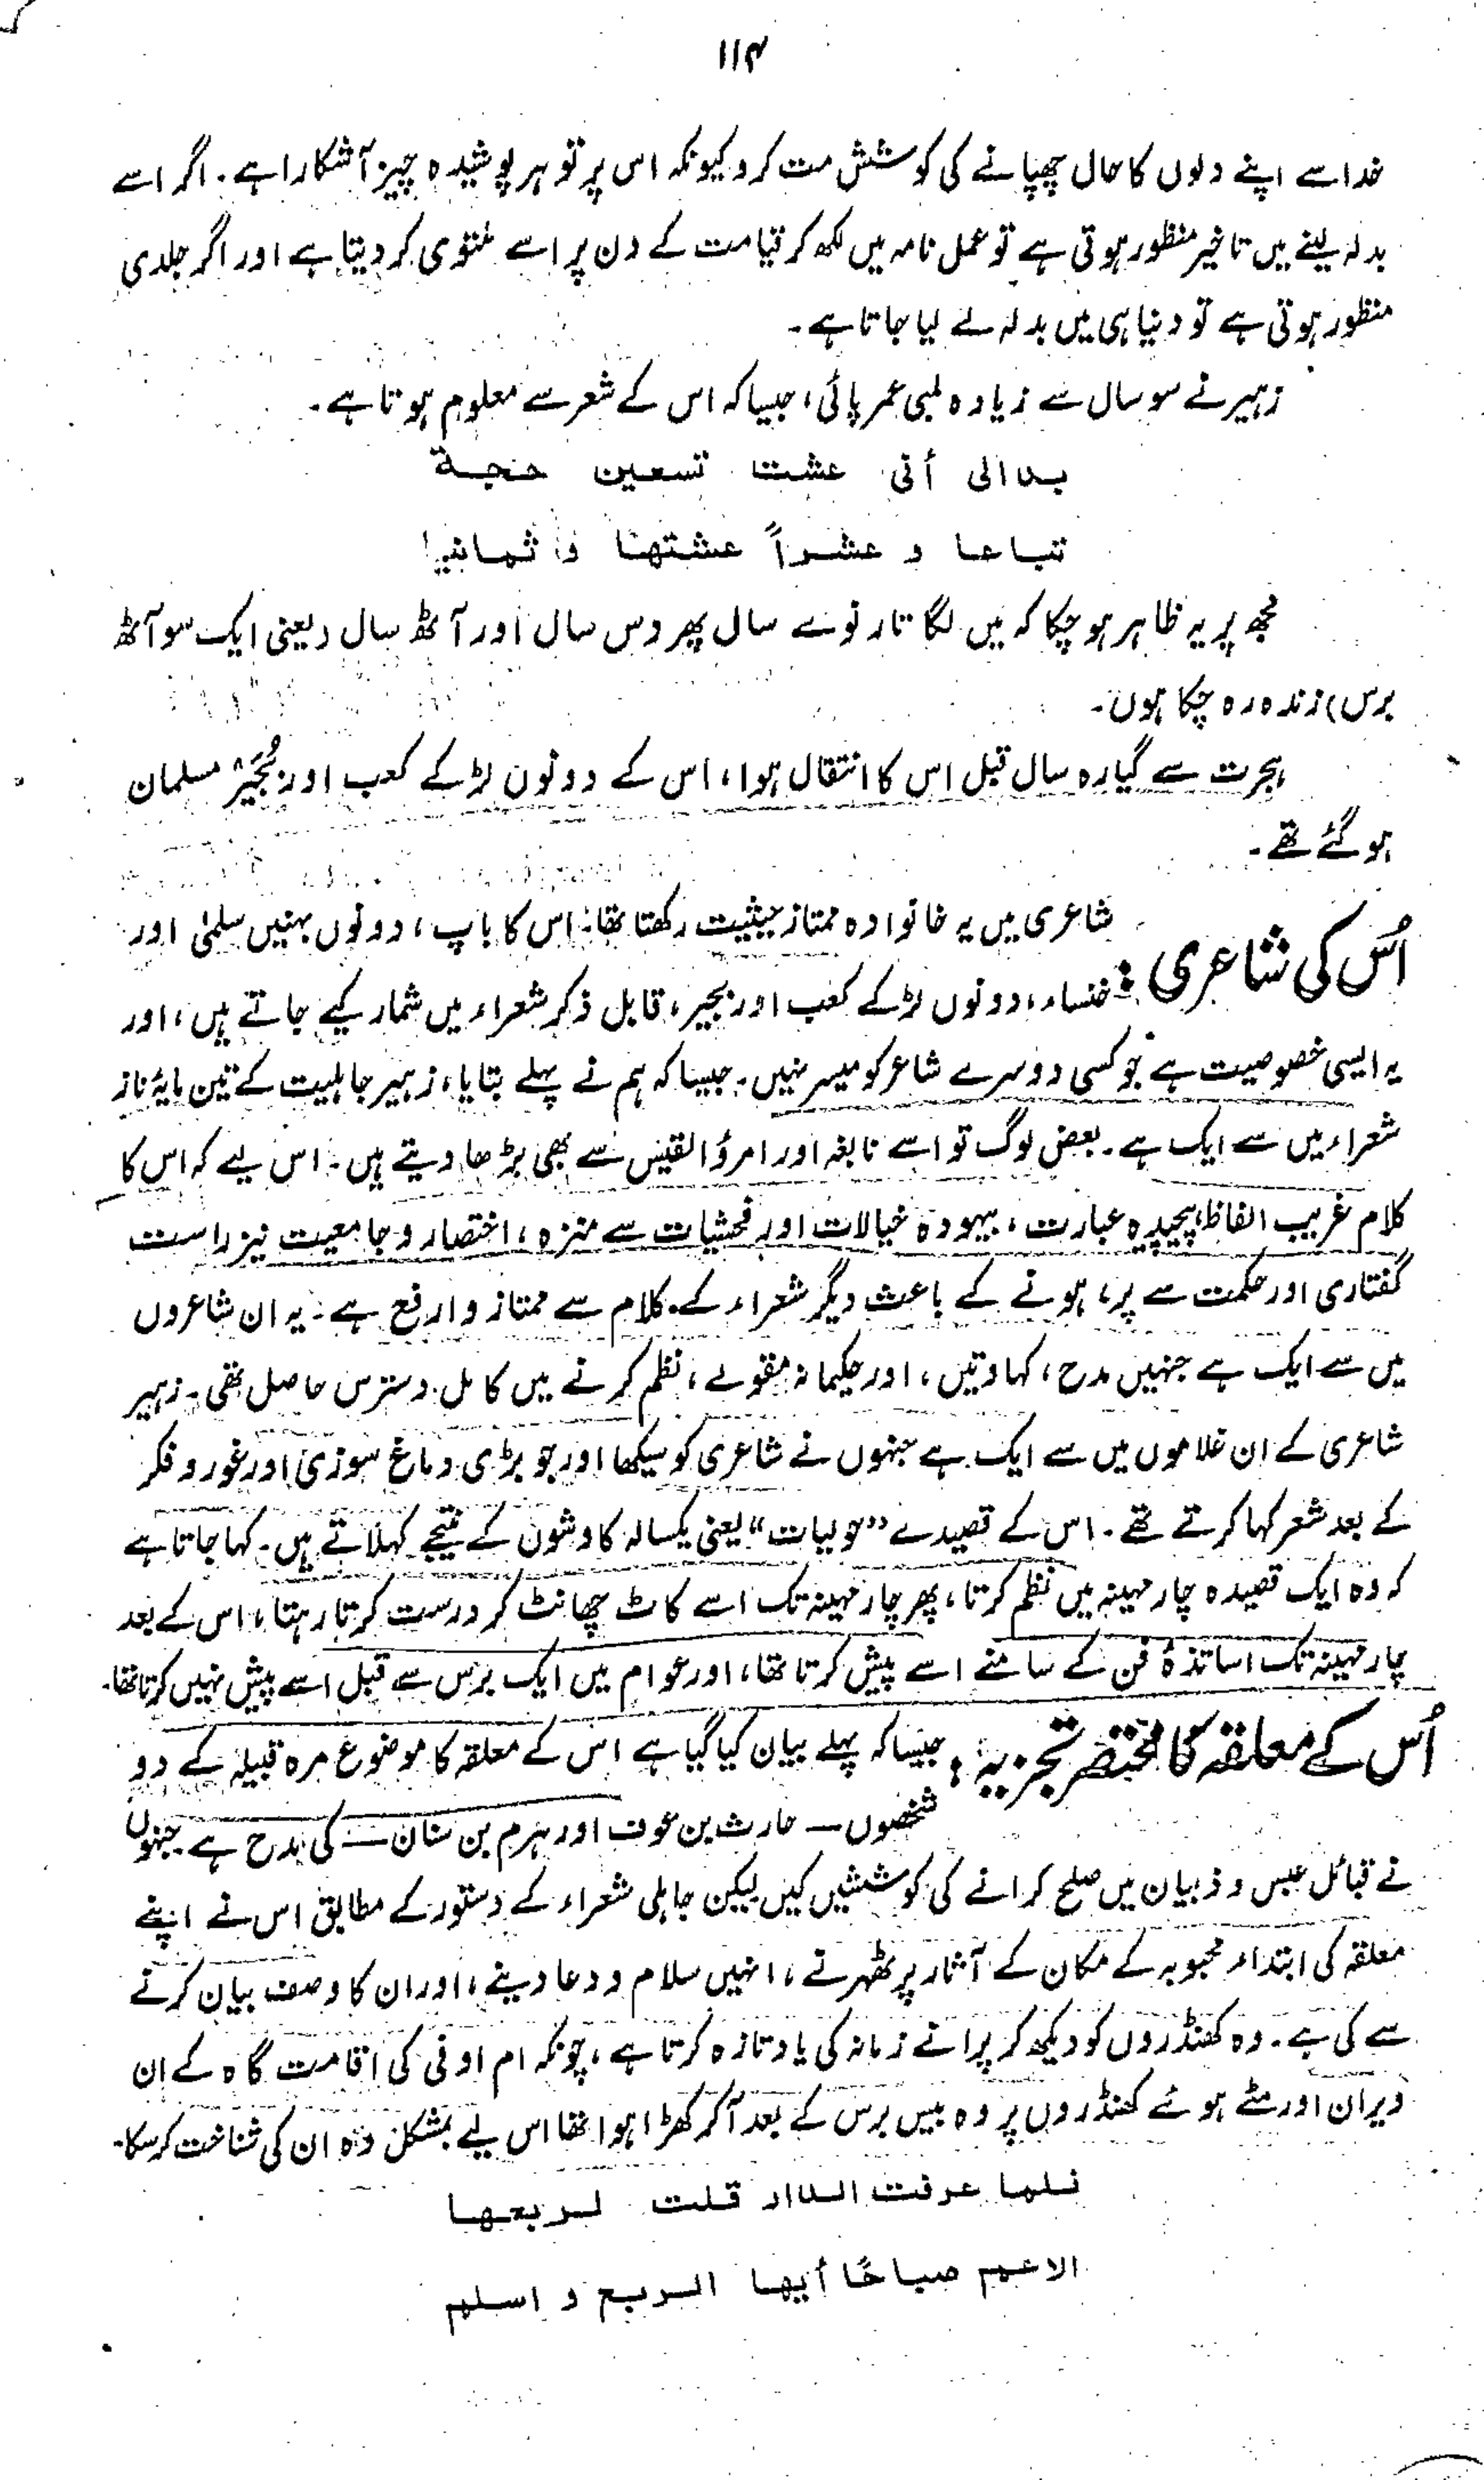 ۱۱۴
خدا سے اپنے دلوں کا حال چھپانے کی کوشش مت کرو کیونکہ اس پر تو ہر پوشیدہ چیز آشکارا ہے۔ اگر اسے
بدلہ لینے میں تاخیر منظور ہوتی ہے تو عمل نامہ میں لکھ کر قیامت کے دن پر اسے ملتوی کر دیتا ہے اور اگر جلدی
منظور ہوتی ہے تو دنیا ہی میں بدلہ لے لیا جاتا ہے۔
زہیر نے سو سال سے زیادہ لمبی عمر پائی، جیسا کہ اس کے شعر سے معلوم ہوتا ہے۔
بدالی أنی عشت تسعین حجة
تباعا و عشراً عشتها و ثمانیا
مجھ پر یہ ظاہر ہو چکا کہ میں لگا تار نوے سال پھر دس سال اور آٹھ سال (یعنی ایک سو آٹھ
برس) زندہ رہ چکا ہوں۔
ہجرت سے گیارہ سال قبل اس کا انتقال ہوا، اس کے دونوں لڑکے کعب اور بُجَیْر مسلمان
ہو گئے تھے۔
اُس کی شاعری: شاعری میں یہ خانوادہ ممتاز حیثیت رکھتا تھا: اس کا باپ، دونوں بہنیں سلمیٰ اور
خنساء، دونوں لڑکے کعب اور بجیر، قابل ذکر شعراء میں شمار کیے جاتے ہیں، اور
یہ ایسی خصوصیت ہے جو کسی دوسرے شاعر کو میسر نہیں۔ جیسا کہ ہم نے پہلے بتایا، زہیر جاہلیت کے تین مایۂ ناز
شعراء میں سے ایک ہے۔ بعض لوگ تو اسے نابغہ اور امرؤ القیس سے بھی بڑھا دیتے ہیں۔ اس لیے کہ اس کا
کلام غریب الفاظ، پیچیدہ عبارت، بیہودہ خیالات اور فحشیات سے منزہ، اختصار و جامعیت نیز راست
گفتاری اور حکمت سے پر، ہونے کے باعث دیگر شعراء کے کلام سے ممتاز و ارفع ہے۔ یہ ان شاعروں
میں سے ایک ہے جنہیں مدح، کہاوتیں، اور حکیمانہ مقولے، نظم کرنے میں کامل دسترس حاصل تھی۔ زہیر
شاعری کے ان غلاموں میں سے ایک ہے جنہوں نے شاعری کو سیکھا اور جو بڑی دماغ سوزی اور غور و فکر
کے بعد شعر کہا کرتے تھے۔ اس کے قصیدے ”حولیات“ یعنی یکسالہ کاوشوں کے نتیجے کہلاتے ہیں۔ کہا جاتا ہے
کہ وہ ایک قصیدہ چار مہینہ میں نظم کرتا، پھر چار مہینہ تک اسے کاٹ چھانٹ کر درست کرتا رہتا، اس کے بعد
چار مہینہ تک اساتذۂ فن کے سامنے اسے پیش کرتا تھا، اور عوام میں ایک برس سے قبل اسے پیش نہیں کرتا تھا۔
اُس کے معلقہ کا مختصر تجزیہ: جیسا کہ پہلے بیان کیا گیا ہے اس کے معلقہ کا موضوع مرہ قبیلہ کے دو
شخصوں — حارث بن عوف اور ہرم بن سنان — کی مدح ہے۔ جنہوں
نے قبائل عبس و ذبیان میں صلح کرانے کی کوششیں کیں لیکن جاہلی شعراء کے دستور کے مطابق اس نے اپنے
معلقہ کی ابتداء محبوبہ کے مکان کے آثار پر ٹھہرنے، انہیں سلام و دعا دینے، اور ان کا وصف بیان کرنے
سے کی ہے۔ وہ کھنڈروں کو دیکھ کر پرانے زمانہ کی یاد تازہ کرتا ہے، چونکہ ام اوفی کی اقامت گاہ کے ان
ویران اور مٹے ہوئے کھنڈروں پر وہ بیس برس کے بعد آ کر کھڑا ہوا تھا اس لیے بمشکل وہ ان کی شناخت کر سکا۔
فلما عرفت الدار قلت لربعها
الا عم صباحًا أیها الربع و اسلم